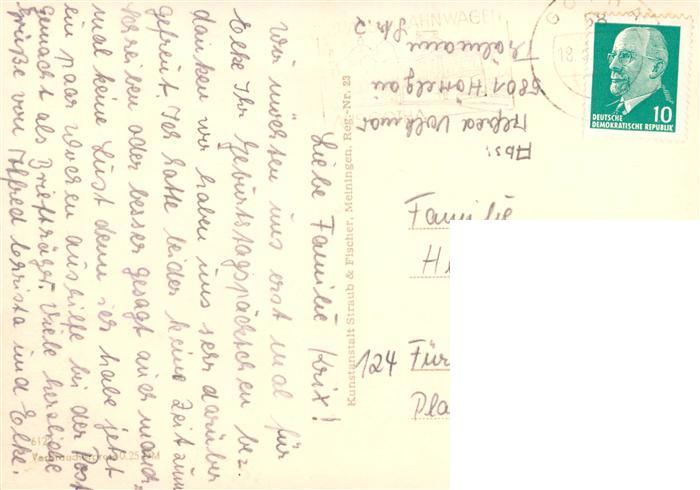 Liebe Familie Krix!
Wir möchten uns erst mal für
Elke Ihr Geburtstagspäckchen be-
danken wir haben uns sehr darüber
gefreut. Ich hatte leider keine Zeit zum
schreiben oder besser gesagt auch manch-
mal keine Lust denn ich habe jetzt
ein paar Wochen aushilfe bei der Post
gemacht als Briefträger. Viele herzliche
Grüße von Alfred Christa und Elke.
612
Verbraucherpreis 0.25 DM
Kunstanstalt Straub & Fischer, Meiningen. Reg.-Nr. 23
Abs:
Alfred Volkmar
5801 Hörselgau
Thälmann
Str. 2
BAHNWAGEN
GOTHA
58
18.
DEUTSCHE
DEMOKRATISCHE REPUBLIK
10
Familie
H
124 Für
Pla